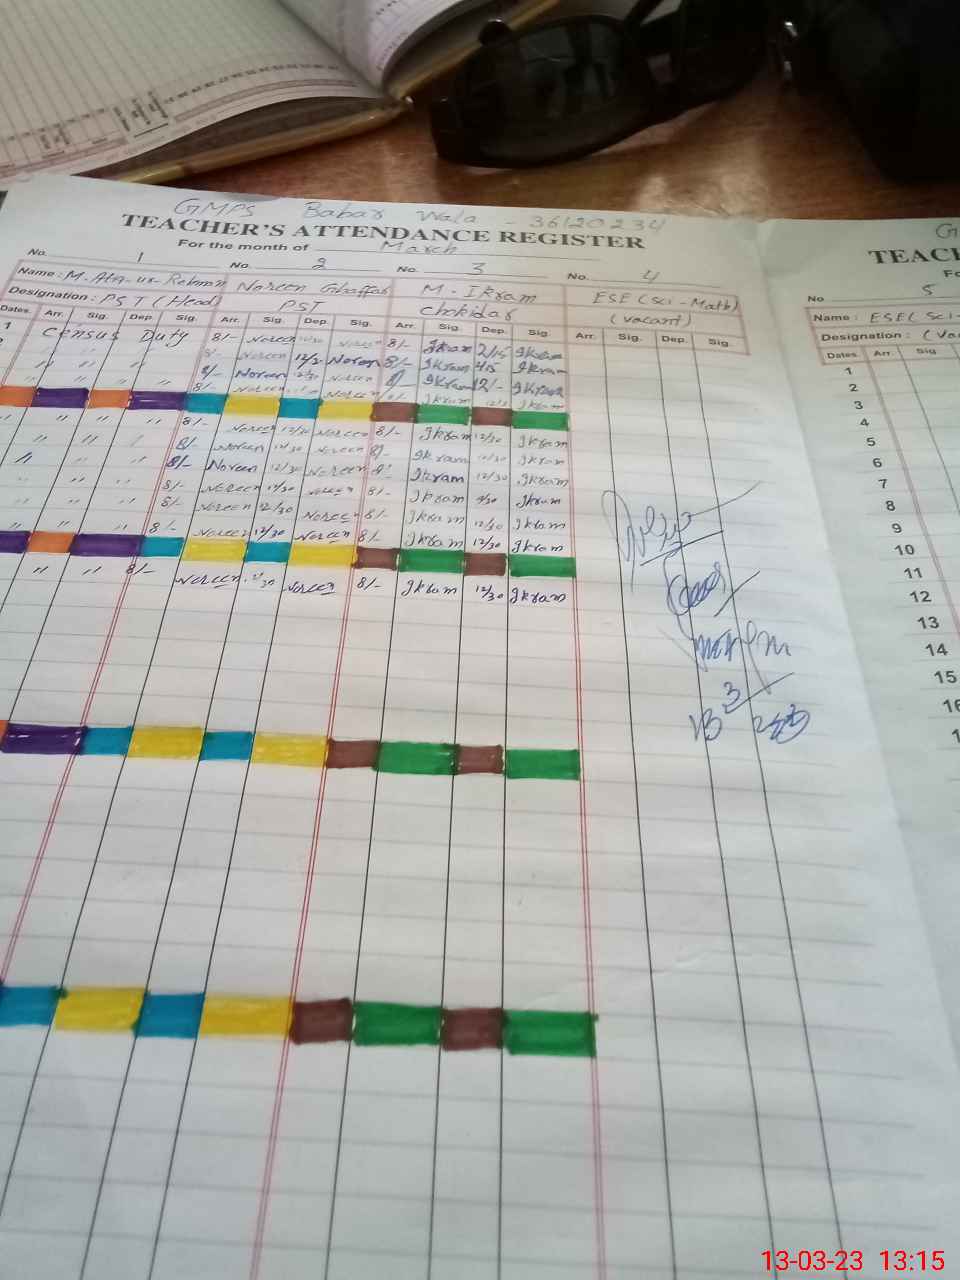 GMPS Babar Wala - 36120234
TEACHER'S ATTENDANCE REGISTER
For the month of March
No. 1 No. 2 No. 3 No. 4
Name: M. Ata-ur-Rehman Noreen Ghaffar M. Ikram ESE (Sci-Math)
Designation: PST (Head) PST Chokidar (vacant)
Dates. Arr. Sig. Dep. Sig. Arr. Sig. Dep. Sig. Arr. Sig. Dep. Sig. Arr. Sig. Dep. Sig.
1 Census Duty 8/- Noreen 12/30 Noreen 8/- Ikram 2/15 Ikram
" " " 8/- Noreen 12/30 Noreen 8/- Ikram Ikram
" " " " 8/- Noreen 12/30 Noreen Ikram 12/- Ikram
8/- Noreen Noreen Ikram Ikram
" " " " 8/- Noreen 12/30 Noreen 8/- Ikram 12/30 Ikram
" " 8/- Noreen 12/30 Noreen 8/- Ikram 12/30 Ikram
" " " 8/- Noreen 12/30 Noreen Ikram 12/30 Ikram
" " " 8/- Noreen 12/30 Noreen 8/- Ikram Ikram
" " " 8/- Noreen 12/30 Noreen 8/- Ikram 12/30 Ikram
" " " 8/- Noreen 12/30 Noreen 8/- Ikram 12/30 Ikram
" " 8/- Noreen 12/30 Noreen 8/- Ikram 12/30 Ikram
13 3
TEAC
No 5
Name: ESE (Sci-
Designation: (Va
Dates. Arr. Sig
1
2
3
4
5
6
7
8
9
10
11
12
13
14
15
13-03-23 13:15